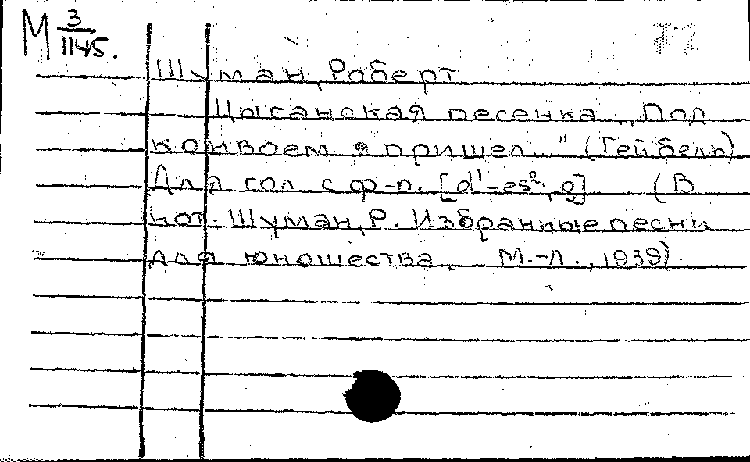 М 3/1145.
Шуман, Роберт
Цыганская песенка „Под
конвоем я пришел..." (Гейбель)
Для гол. с ф-п. [d¹-es², a]. (В
нот. Шуман, Р. Избранные песни
для юношества. М.-Л., 1939)